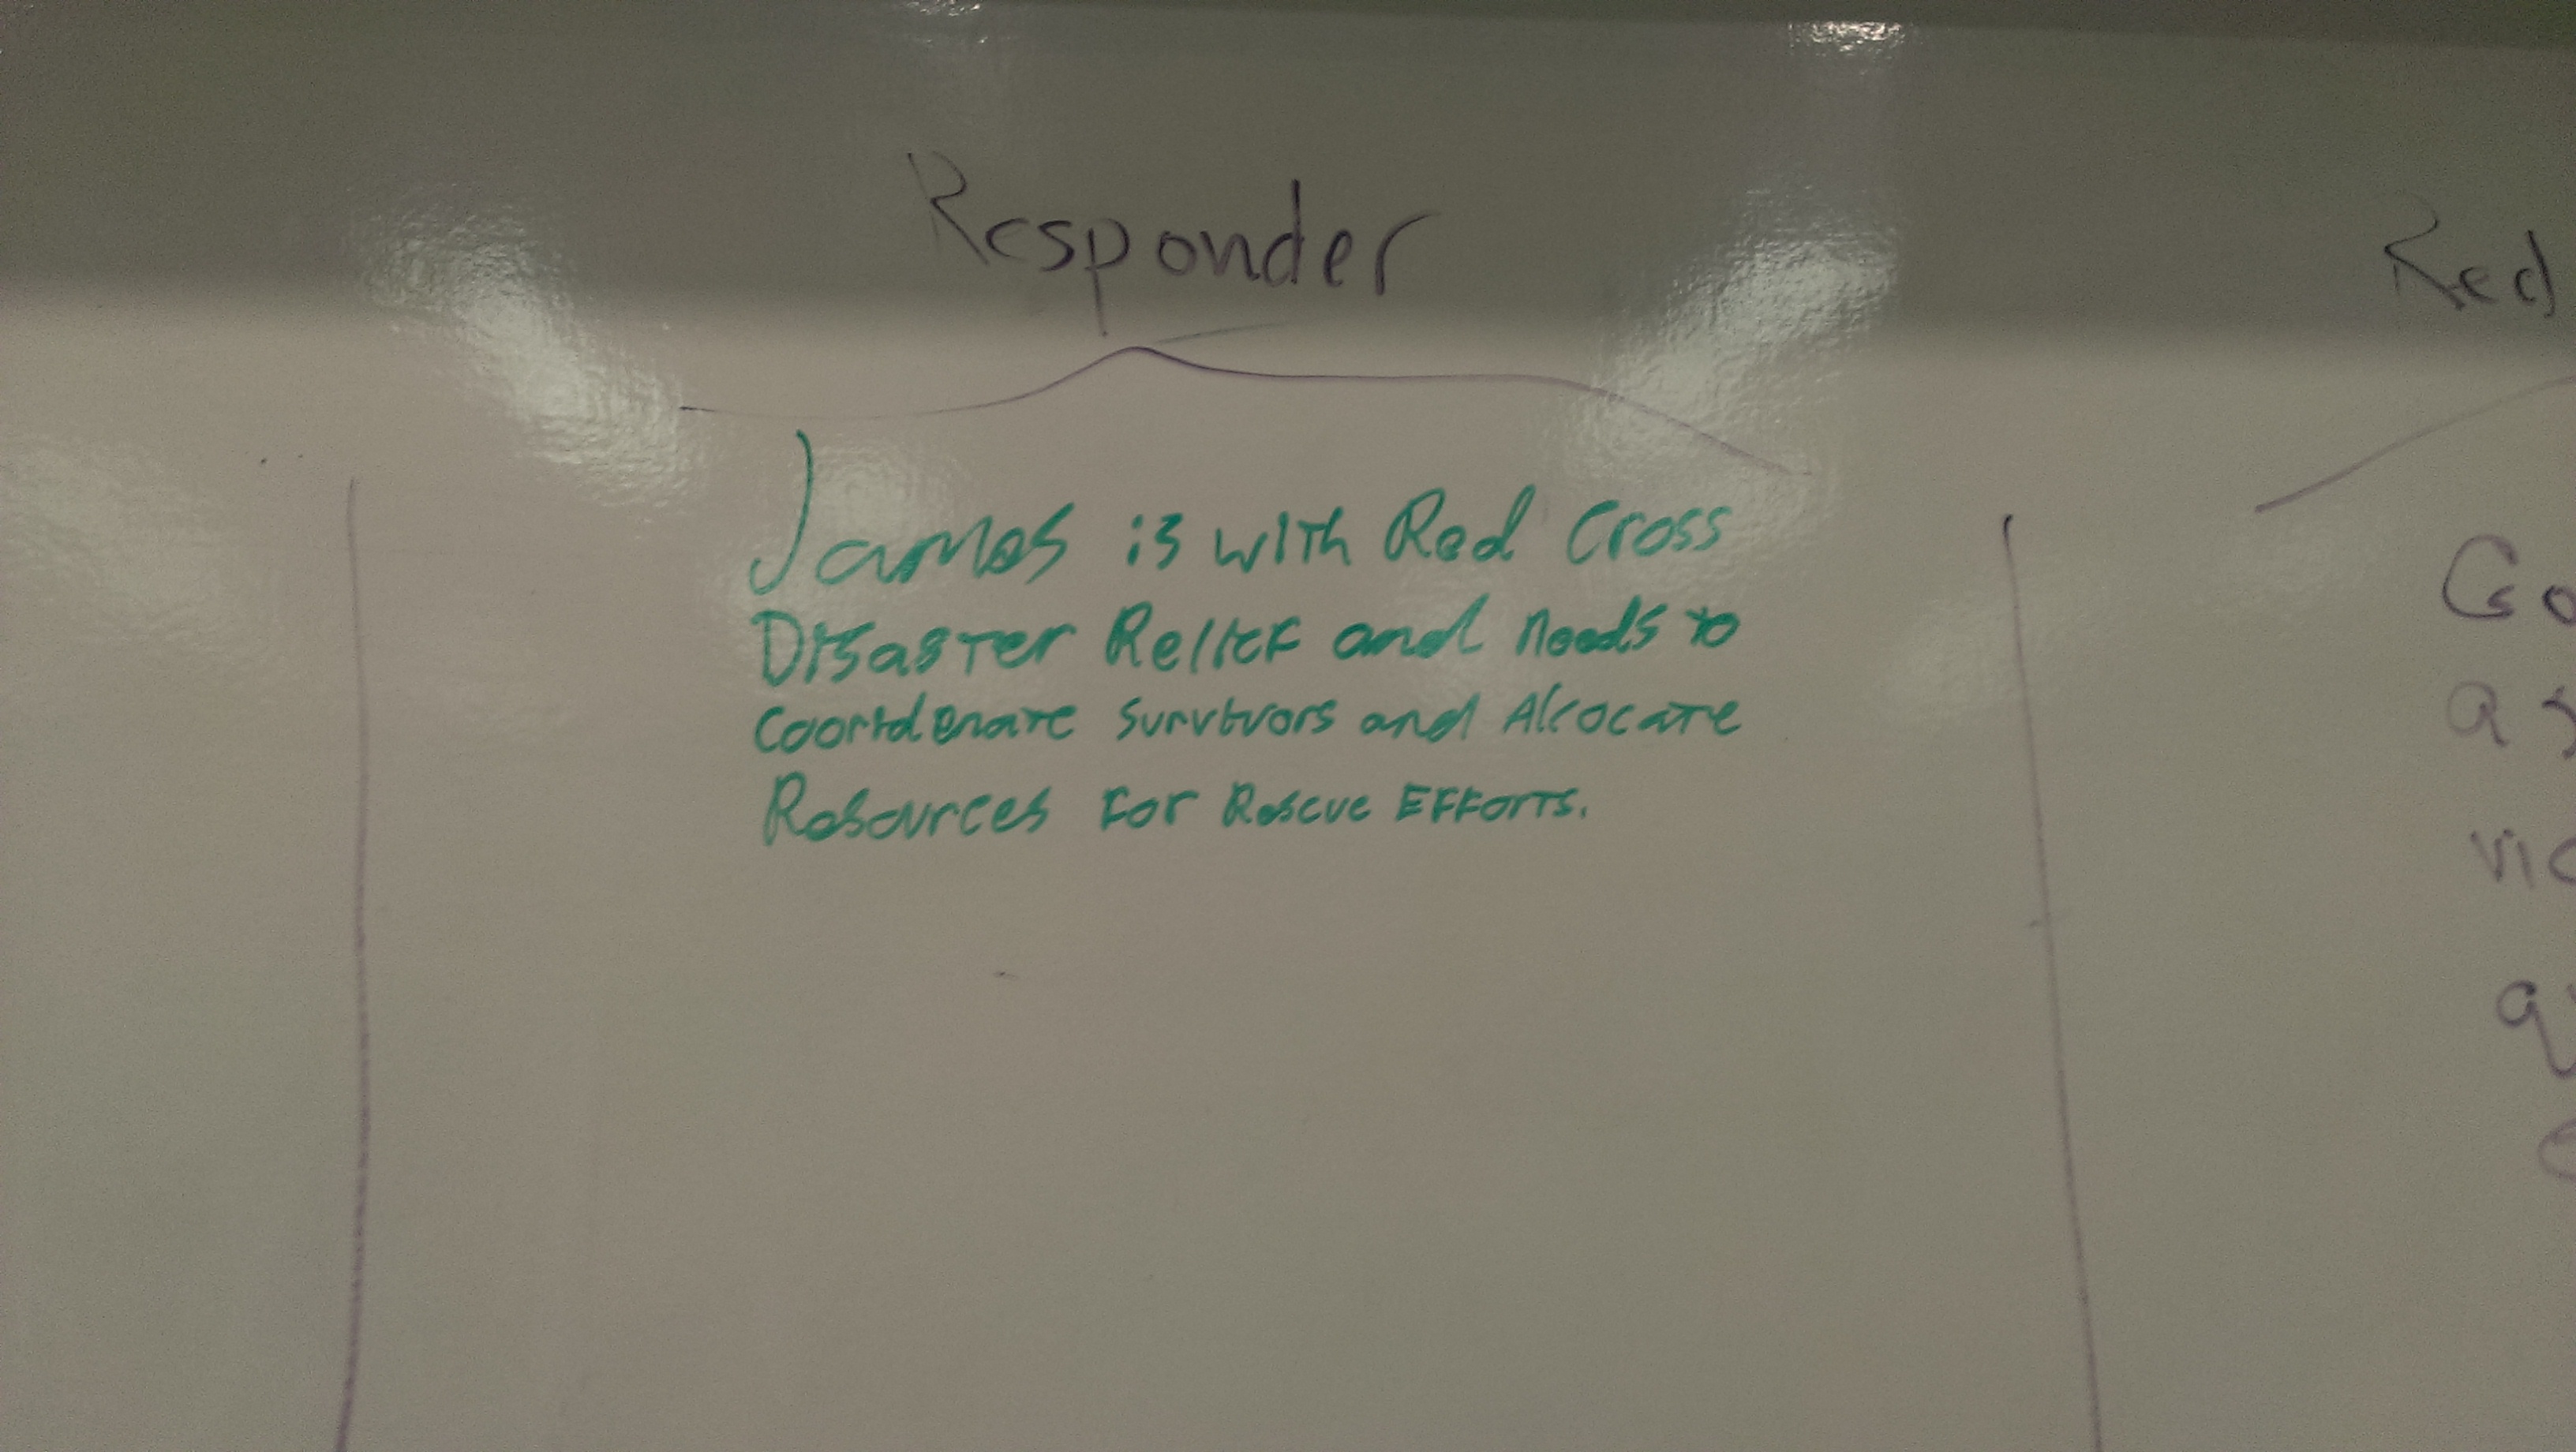 Responder
Red
James is with Red Cross
Disaster Relief and needs to
Coordenate Survivors and Allocate
Resources For Rescue Efforts.